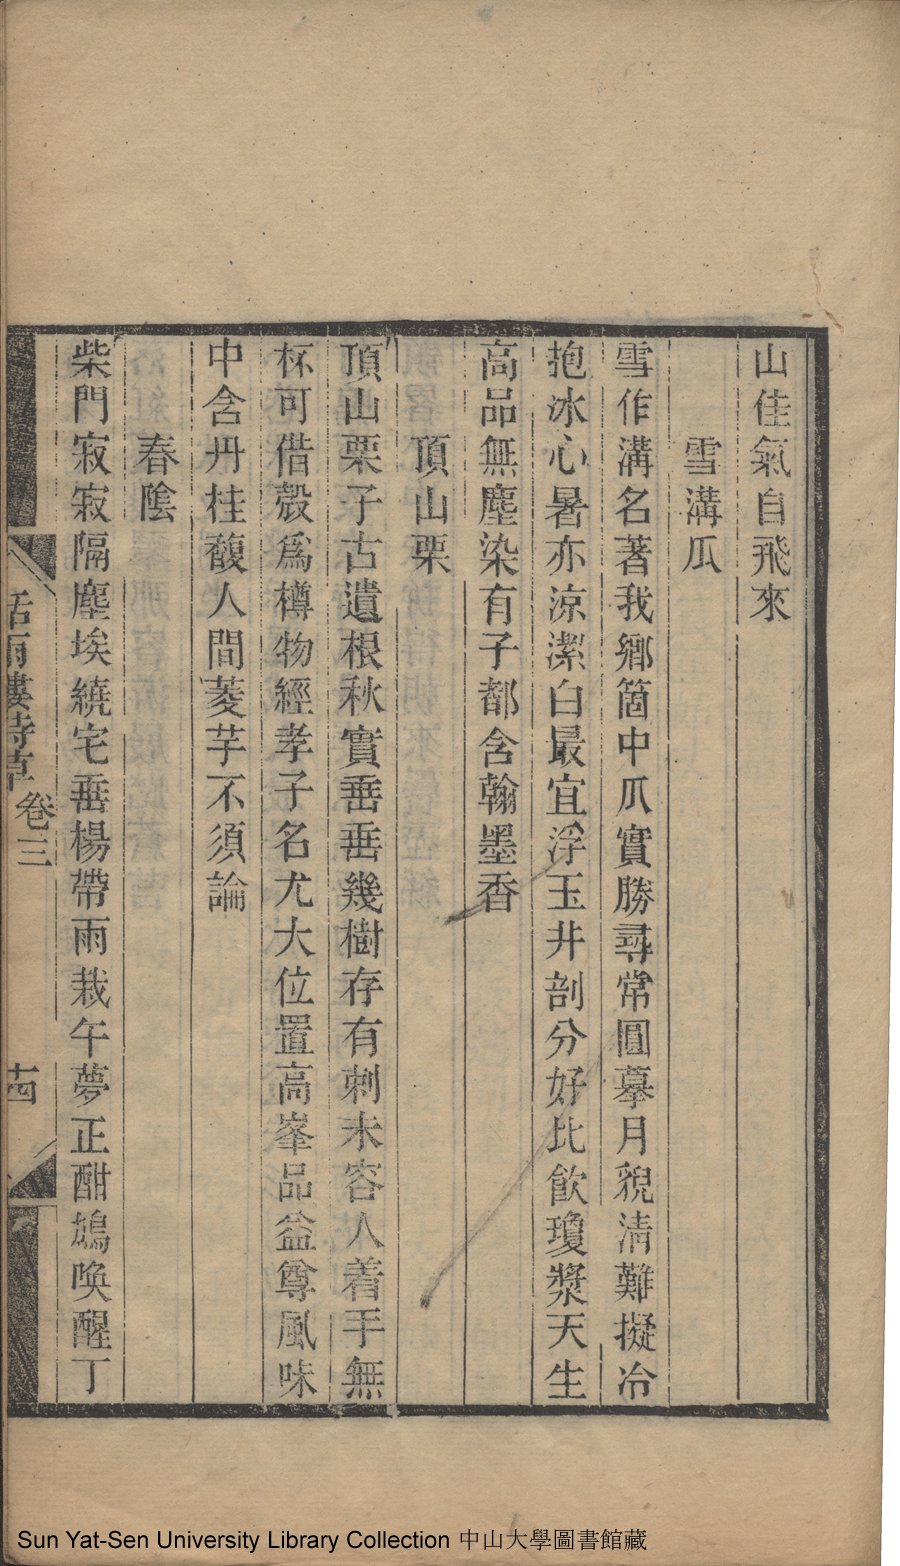 山佳氣自飛來
雪溝瓜
雪作溝名著我鄉箇中瓜實勝尋常圓摹月貌清難擬冷
抱冰心暑亦涼潔白最宜浮玉井剖分好比飲瓊漿天生
高品無塵染有子都含翰墨香
頂山栗
頂山栗子古遺根秋實垂垂幾樹存有刺未容人着手無
杯可借殼爲樽物經孝子名尤大位置高峯品益尊風味
中含丹桂馥人間菱芋不須論
春陰
柴門寂寂隔塵埃繞宅垂楊帶雨栽午夢正酣鳩喚醒丁
話雨樓詩草 卷三 十四
Sun Yat-Sen University Library Collection 中山大學圖書館藏